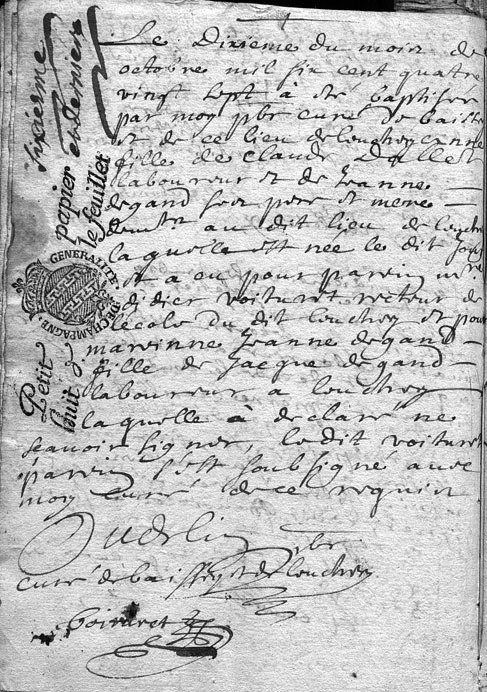 sixiesme
et dernier
Petit papier
huit d. le feuillet
GENERALITE DE CHAMPAGNE
Le Dixieme du mois de
octobre mil six cent quatre
vingt sept à été baptisée
par moy pbr curé de baissey
et de ce lieu de louchey
fille de Claude
laboureur et de Jeanne
degand ses pere et mere
au dit lieu de louchey
laquelle est née le dit jour
et a eu pour parein
didier voituret recteur de
lecole du dit louchey et pour
mareinne Jeanne degand
fille de Jacque degand
laboureur a louchey
laquelle à declaré ne
scavoir signer, le dit voituret
parein s'est soubsigné avec
moy curé de ce requis
Oudelin pbr
curé de baissey et de louchey
voituret